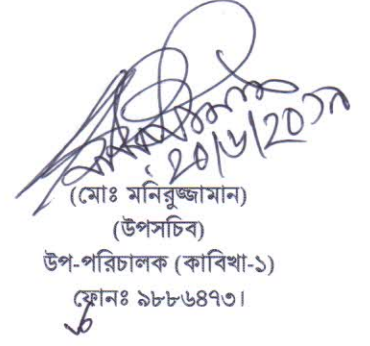 ২০/৬/২০১৯
(মোঃ মনিরুজ্জামান)
(উপসচিব)
উপ-পরিচালক (কাবিখা-১)
ফোনঃ ৯৮৮৬৪৭৩।